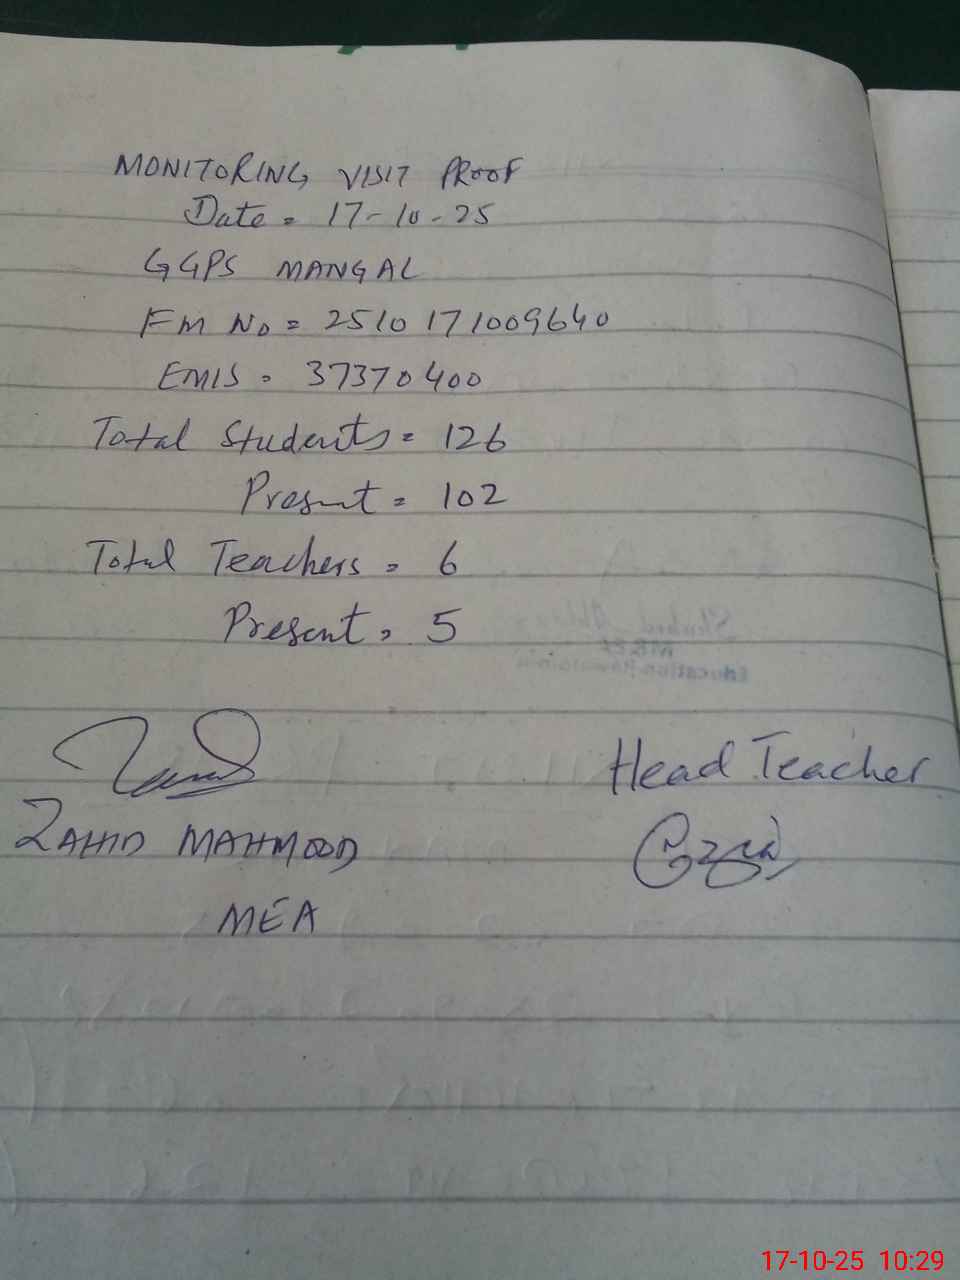 MONITORING VISIT PROOF
Date = 17-10-25
GGPS MANGAL
FM No = 2510171009640
EMIS = 37370400
Total Students = 126
Present = 102
Total Teachers = 6
Present = 5
Head Teacher
ZAHID MAHMOOD
MEA
17-10-25 10:29